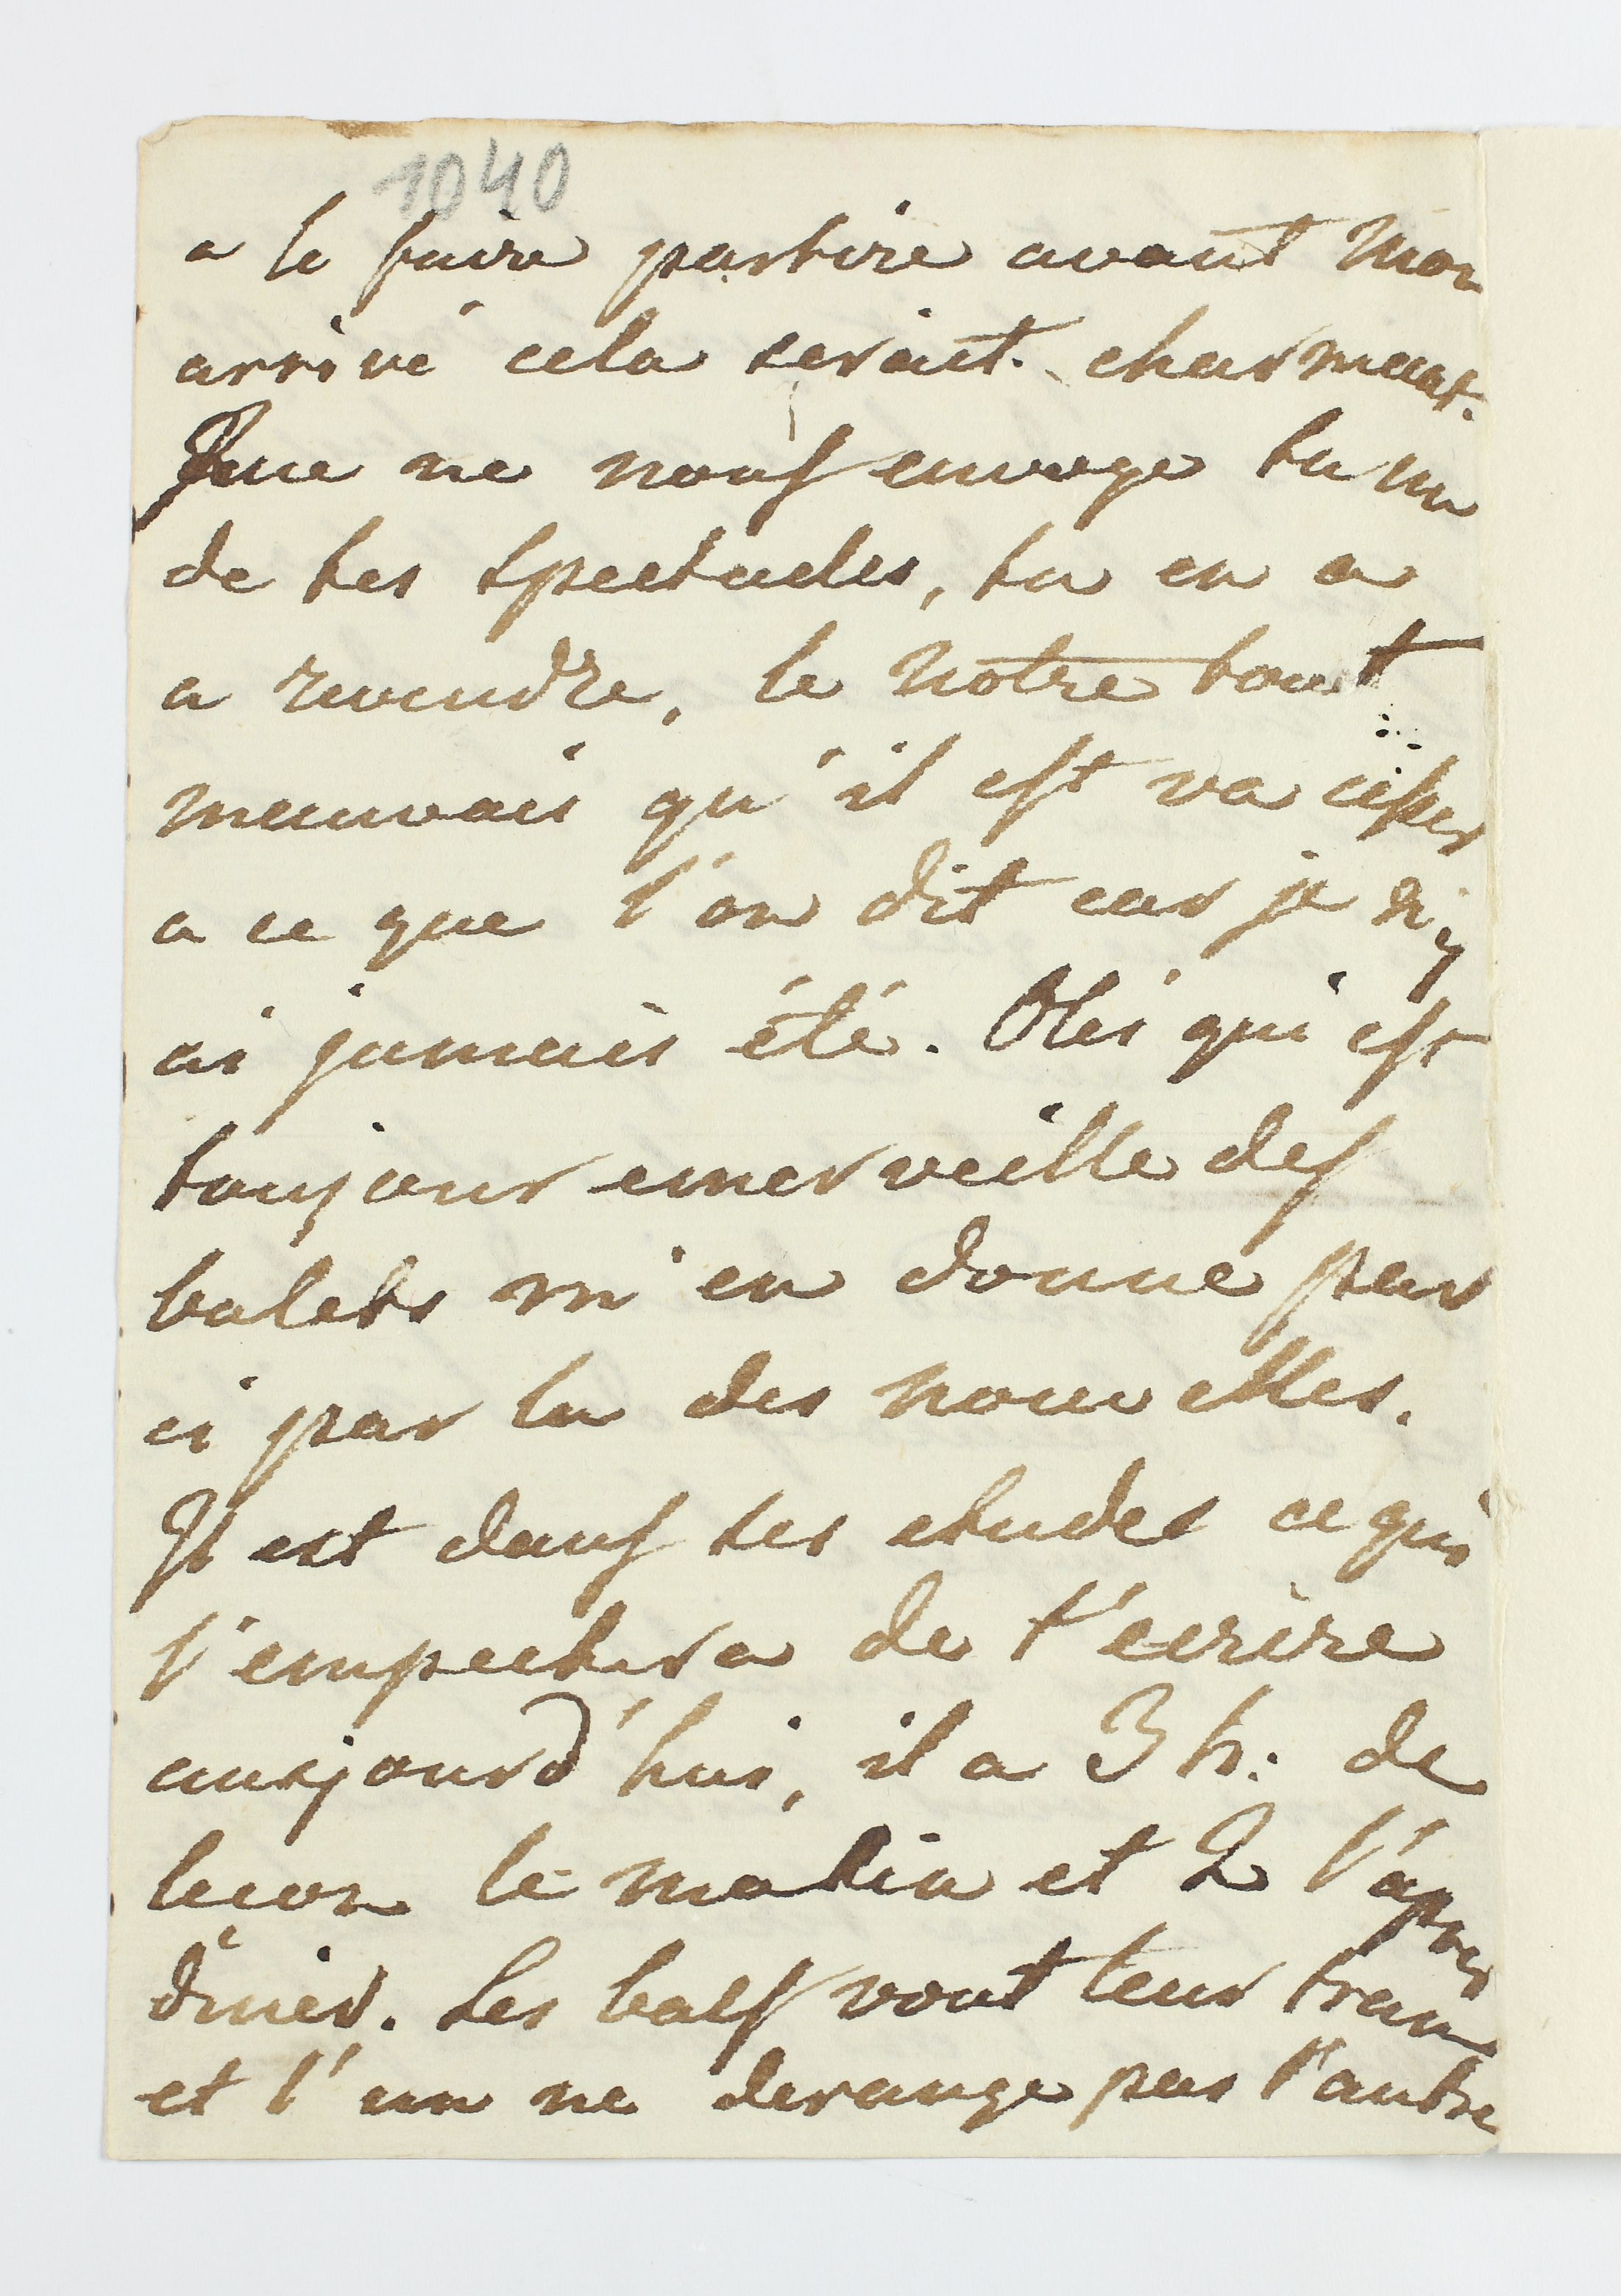 1040
a le faire partire avant mon
arrivé cela serait charmant.
Que ne nous envoye tu un
de tes spectacles, tu en a
a revendre, le notre tout
mauvais qu'il est va cesser
a ce que l'on dit car je n'y
ai jamais été. Olei qui est
toujour emerveille des
balets m'en donne par
ci par la des nouvelles.
Il est dans ses etudes ce qui
l'empechera de t'ecrire
aujourd'hui, il a 3 h: de
lecon le matin et 2 l'apres
diner. Les bals vont leur train
et l'un ne derange pas l'autre